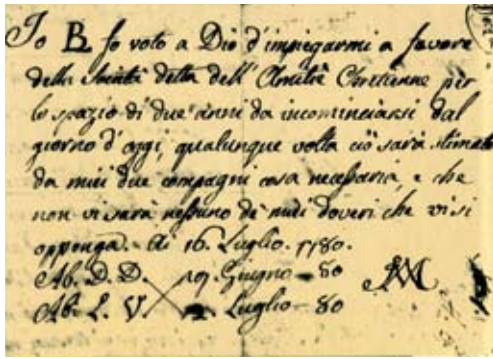 Io BL fo voto a Dio d'impiegarmi a favore
della Società detta dell'Amitié Chretienne per
lo spazio di due anni da incominciarsi dal
giorno d'oggi, qualunque volta ciò sarà stimato
da miei due compagni cosa necessaria, e che
non vi sarà nessuno de' miei doveri che vi si
opponga. Ai 16. Luglio. 1780.
Ab. D. D. 19. Giugno - 80
Ab. L. V. Luglio - 80